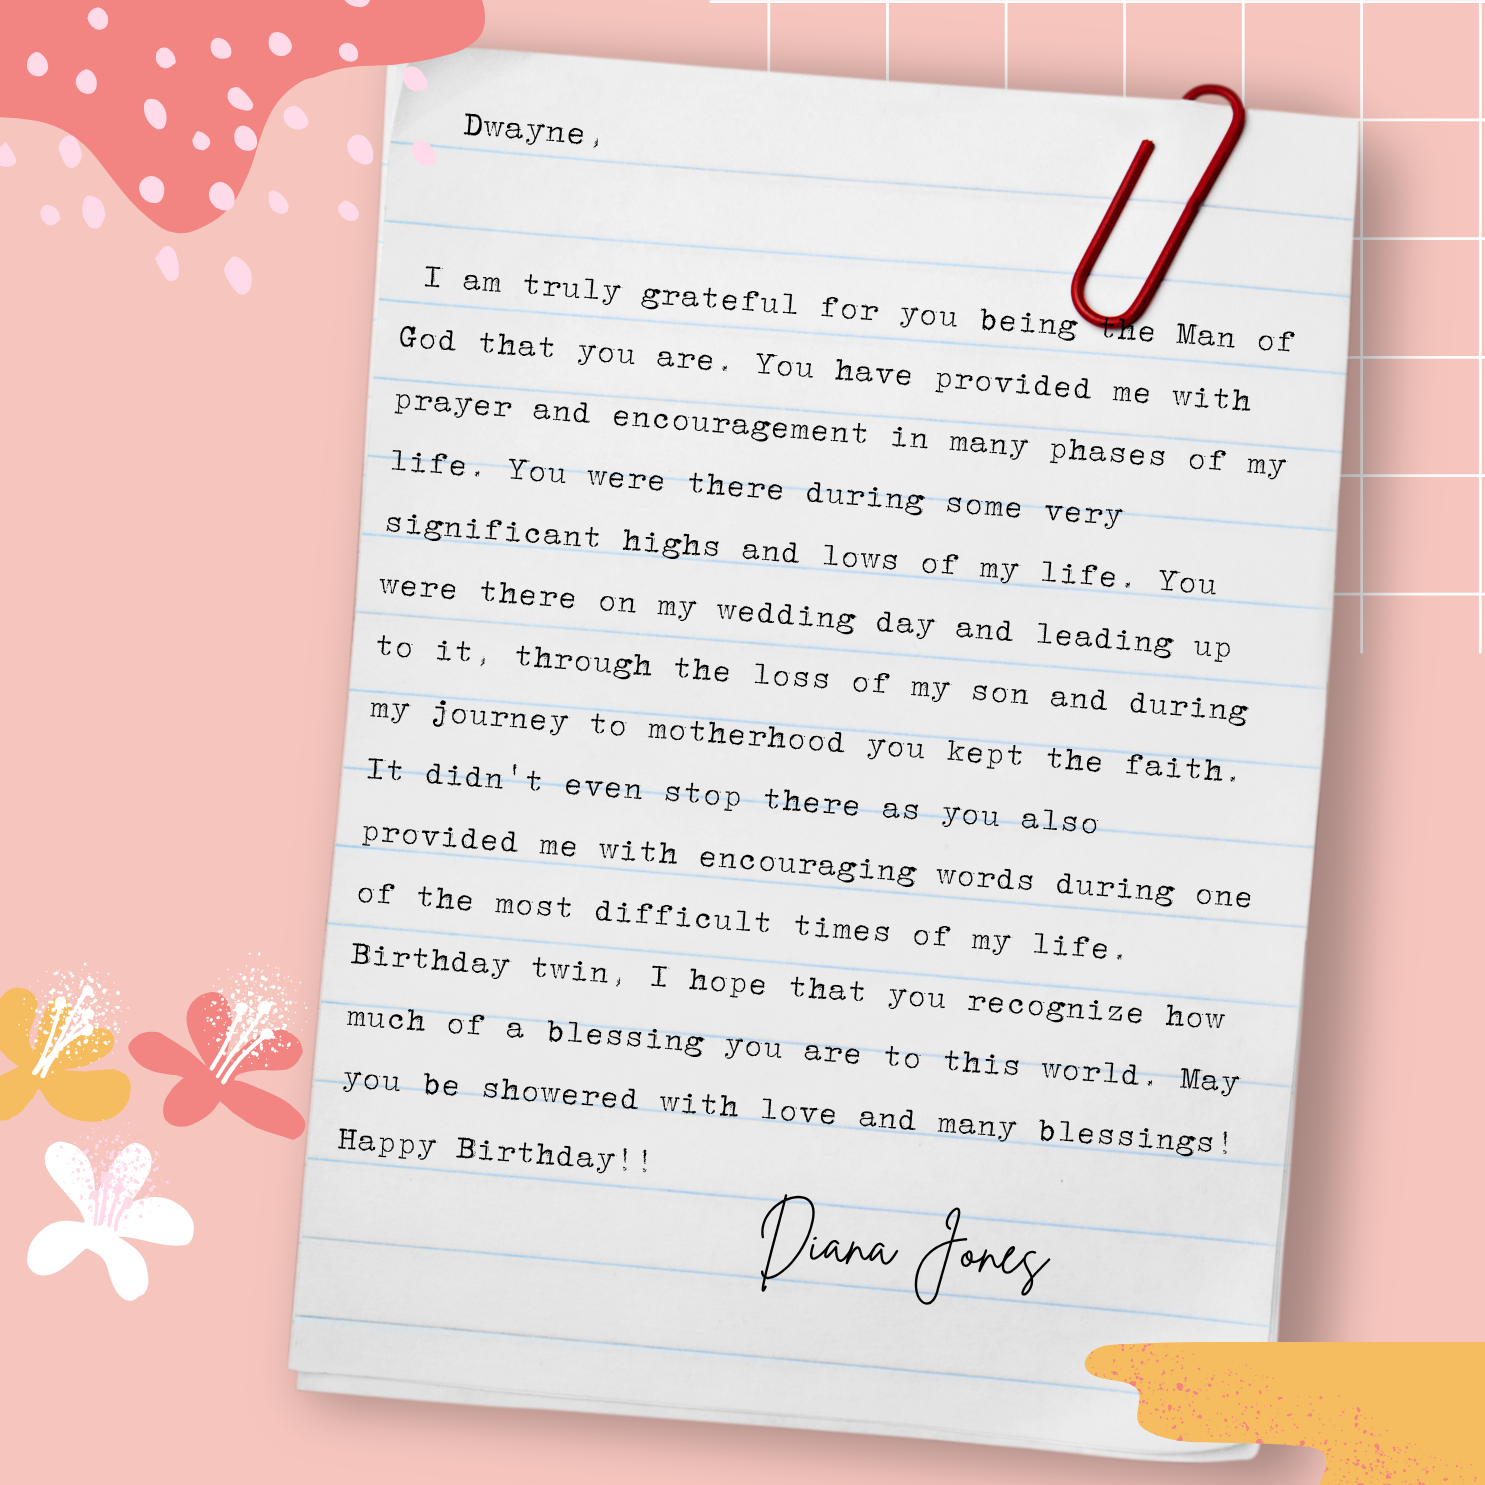 Dwayne,
I am truly grateful for you being the Man of
God that you are. You have provided me with
prayer and encouragement in many phases of my
life. You were there during some very
significant highs and lows of my life. You
were there on my wedding day and leading up
to it, through the loss of my son and during
my journey to motherhood you kept the faith.
It didn't even stop there as you also
provided me with encouraging words during one
of the most difficult times of my life.
Birthday twin, I hope that you recognize how
much of a blessing you are to this world. May
you be showered with love and many blessings!
Happy Birthday!!
Diana Jones